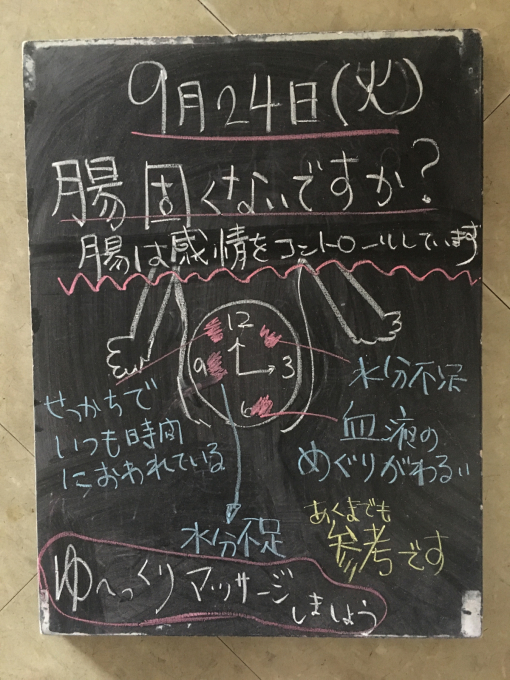 9月24日(火)
腸固くないですか?
腸は感情をコントロールしています
12
9
3
6
せっかちで
いつも時間
におわれている
水分不足
血液の
めぐりがわるい
水分不足
あくまでも
参考です
ゆ〜っくりマッサージしましょう